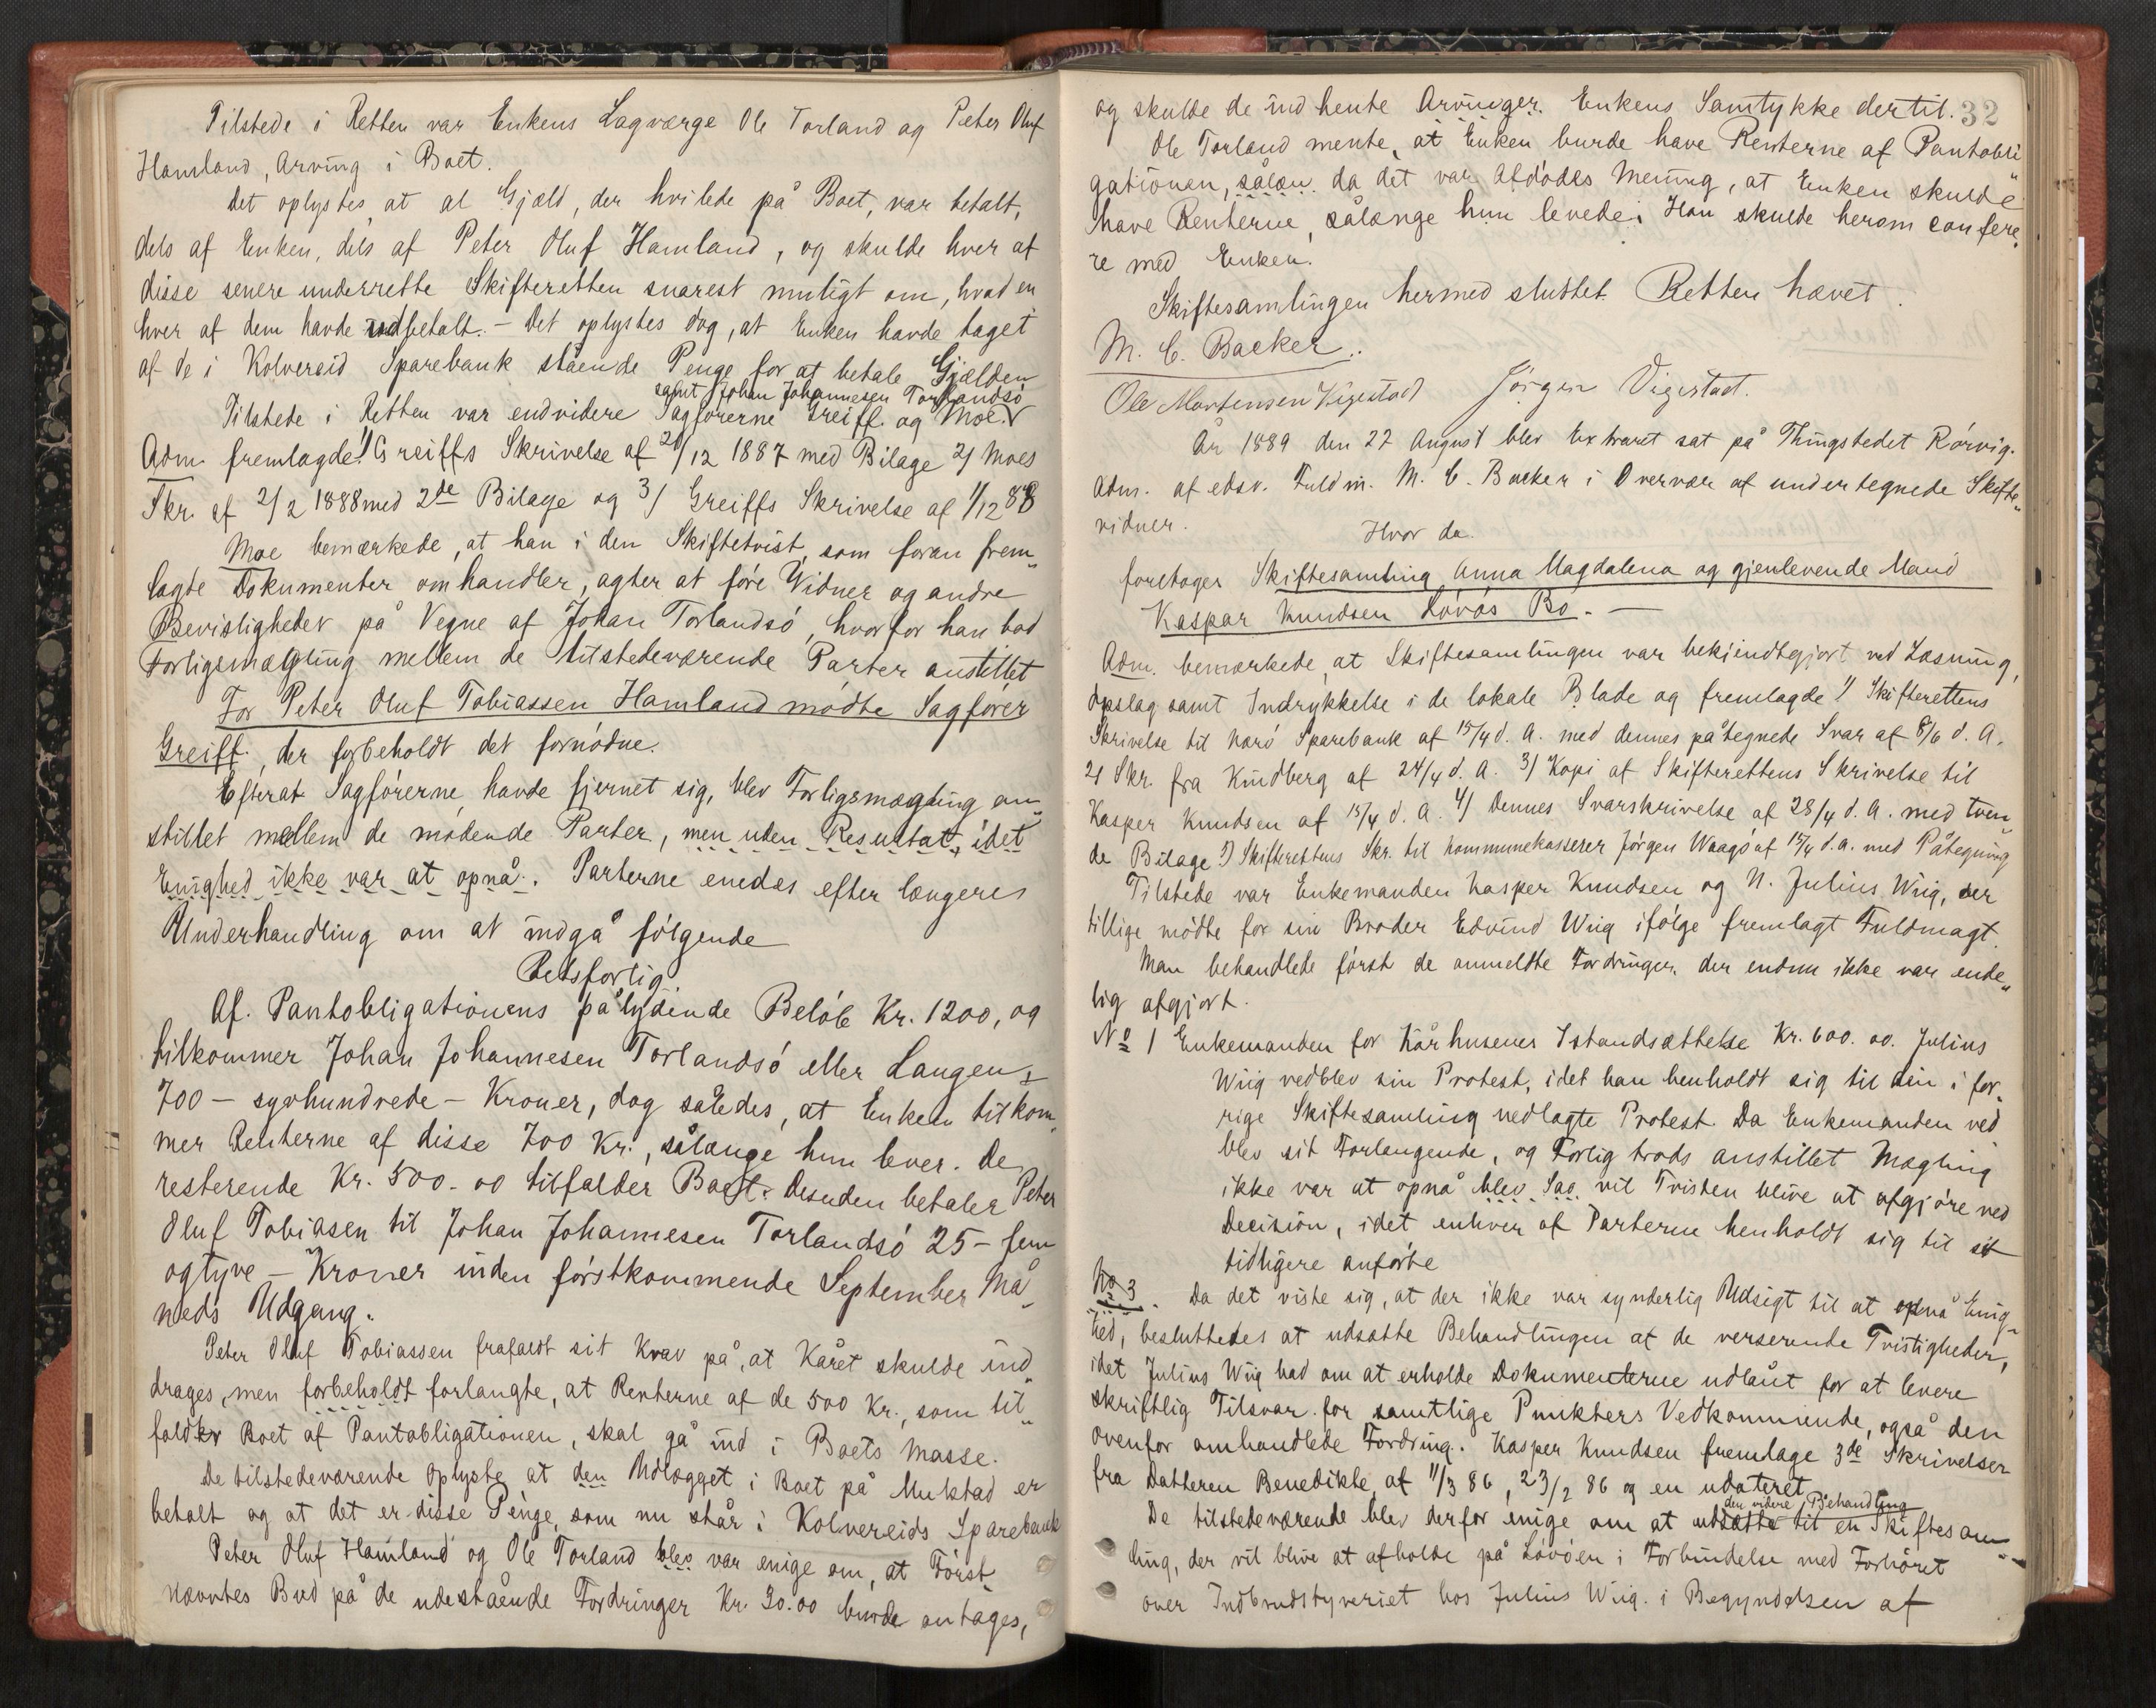 Tilstede i Retten var Enkens Lagværge Ole Torland og Peter Oluf
Hamland, Arving i Boet.
Det oplystes, at al Gjæld, der hvilede på Boet, var betalt,
dels af Enken, dels af Peter Oluf Hamland, og skulde hver af
disse senere underrette Skifteretten snarest muligt om, hvad en
hver af dem havde udbetalt. – Det oplystes dog, at Enken havde taget
af de i Kolvereid Sparebank stående Penge for at betale Gjælden
samt Johan Johannesen Torlandsö
Tilstede i Retten var endvidere Sagförerne Greiff og Moe.
Adm. fremlagde 1) Greiffs Skrivelse af 20/12 1887 med Bilage 2) Moes
Skr. af 2/2 1888 med 2de Bilage og 3) Greiffs Skrivelse af 1/12 88
Moe bemærkede, at han i den Skiftetvist, som foran frem„
lagte Dokumenter omhandler, agter at före Vidner og andre
Bevisligheder på Vegne af Johan Torlandsö, hvorfor han bad
Forligsmægling mellem de tilstedeværende Parter anstillet
For Peter Oluf Tobiassen Hamland mödte Sagförer
Greiff, der forbeholdt det fornödne.
Efterat Sagförerne havde fjernet sig, blev Forligsmægling an„
stillet mellem de mödende Parter, men uden Resultat, idet
Enighed ikke var at opnå. Parterne enedes efter længere
Underhandling om at indgå fölgende
Retsforlig
Af Pantobligationens pålydende Belöb Kr. 1200, og
tilkommer Johan Johannesen Torlandsö eller Langen
700 – syvhundrede – Kroner, dog således, at Enken tilkom„
mer Renterne af disse 700 Kr., sålænge hun lever. De
resterende Kr. 500.00 tilfalder Boet. Desuden betaler Peter
Oluf Tobiasen til Johan Johannesen Torlandsö 25 – fem
ogtyve – Kroner inden förstkommende September Må„
neds Udgang.
Peter Oluf Tobiassen frafaldt sit Krav på, at Kåret skulde ind„
drages, men forbeholdt forlangte, at Renterne af de 500 Kr., som til„
falder Boet af Pantobligationen, skal gå ind i Boets Masse.
De tilstedeværende oplyste at den Udlægget i Boet på Muklstad er
betalt og at det er disse Penge, som nu står i Kolvereids Sparebank
Peter Oluf Hamland og Ole Torland blev var enige om, at Först„
nævntes Bud på de udestående Fordringer Kr. 30.00 burde antages,
32
og skulde de indhente Arvinger. Enkens Samtykke dertil.
Ole Torland mente, at Enken burde have Renterne af Pantobli„
gationen, sålæn da det var Afdödes Mening, at Enken skulde
have Renterne, sålænge hun levede. Han skulde herom confere„
re med Enken.
Skiftesamlingen hermed sluttet. Retten hævet.
M. C. Backer.
Ole Mortensen Vigestad Jörgen Vigestad.
År 1889 den 22 August blev Extraret sat på Thingstedet Rörvig.
Adm. af edsv. Fuldm. M. C. Backer i Overvær af undertegnede Skifte„
vidner.
Hvor da
foretoges Skiftesamling Anna Magdalena og gjenlevende Mand
Kaspar Knudsen Lövös Bo. –
Adm. bemærkede, at Skiftesamlingen var bekjendtgjort ved Læsning,
Opslag samt Indrykkelse i de lokale Blade og fremlagde 1) Skifterettens
Skrivelse til Nærö Sparebank af 15/4 d. A. med dennes påtegnede Svar af 8/6 d. A.
2) Skr. fra Kindberg af 24/4 d. A. 3) Kopi af Skifterettens Skrivelse til
Kasper Knudsen af 15/4 d. A. 4) Dennes Svarskrivelse af 28/4 d. A. med tven„
de Bilage 5) Skifterettens Skr. til Kommunekasserer Jörgen Waagö af 15/4 d. A. med Påtegning
Tilstede var Enkemanden Kasper Knudsen og N. Julius Wiig, der
tillige mödte for sin Broder Edvind Wiig ifölge fremlagt Fuldmagt.
Man behandlede först de anmeldte Fordringer, der endnu ikke var ende„
lig afgjort.
No 1 Enkemanden for Kårhusenes Istandsættelse Kr. 600.00. Julius
Wiig vedblev sin Protest, idet han henholdt sig til sin i for„
rige Skiftesamling nedlagte Protest. Da Enkemanden ved
blev sit Forlangende, og Forlig trods anstillet Mægling
ikke var at opnå blev Sag vil Tvisten blive at afgjöre ved
Decision, idet enhver af Parterne henholdt sig til sit
tidligere anförte
No 3. Da det viste sig, at der ikke var synderlig Udsigt til at opnå Enig„
hed, besluttedes at udsætte Behandlingen af de verserende Tvistigheder,
idet Julius Wiig bad om at erholde Dokumenterne udlånt for at levere
skriftlig Tilsvar for samtlige Punkters Vedkommende, også den
ovenfor omhandlede Fordring. Kasper Knudsen fremlage 3de Skrivelser
fra Datteren Benedikte af 11/3 86, 23/2 86 og en udateret
den videre Behandling
De tilstedeværende blev derfor enige om at udsætte til en Skiftesam„
ling, der vil blive at afholde på Lövöen i Forbindelse med Forhöret
over Indbrudstyveriet hos Julius Wiig i Begyndelsen af